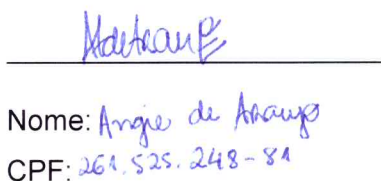 Nome: Angie de Araujo
CPF: 261.525.248-81